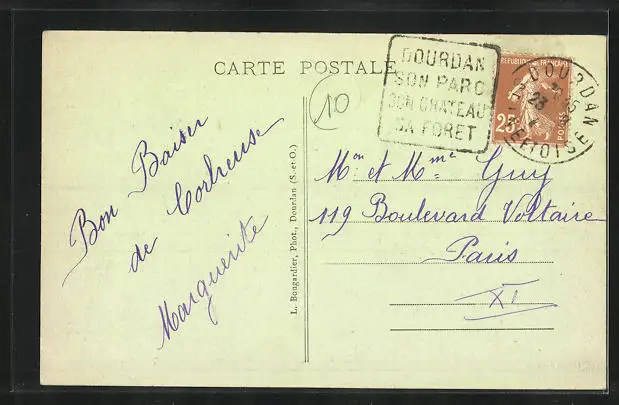 CARTE POSTALE
DOURDAN
SON PARC
SON CHATEAU
SA FORET
REPUBLIQUE FRANÇAISE
25c
POSTES
DOURDAN
S.-ET-OISE
10
Bon Baiser
de Corbreuse
Marguerite
L. Bougardier, Phot., Dourdan (S. et O.)
Mon et Mme Guy
119 Boulevard Voltaire
Paris
XI